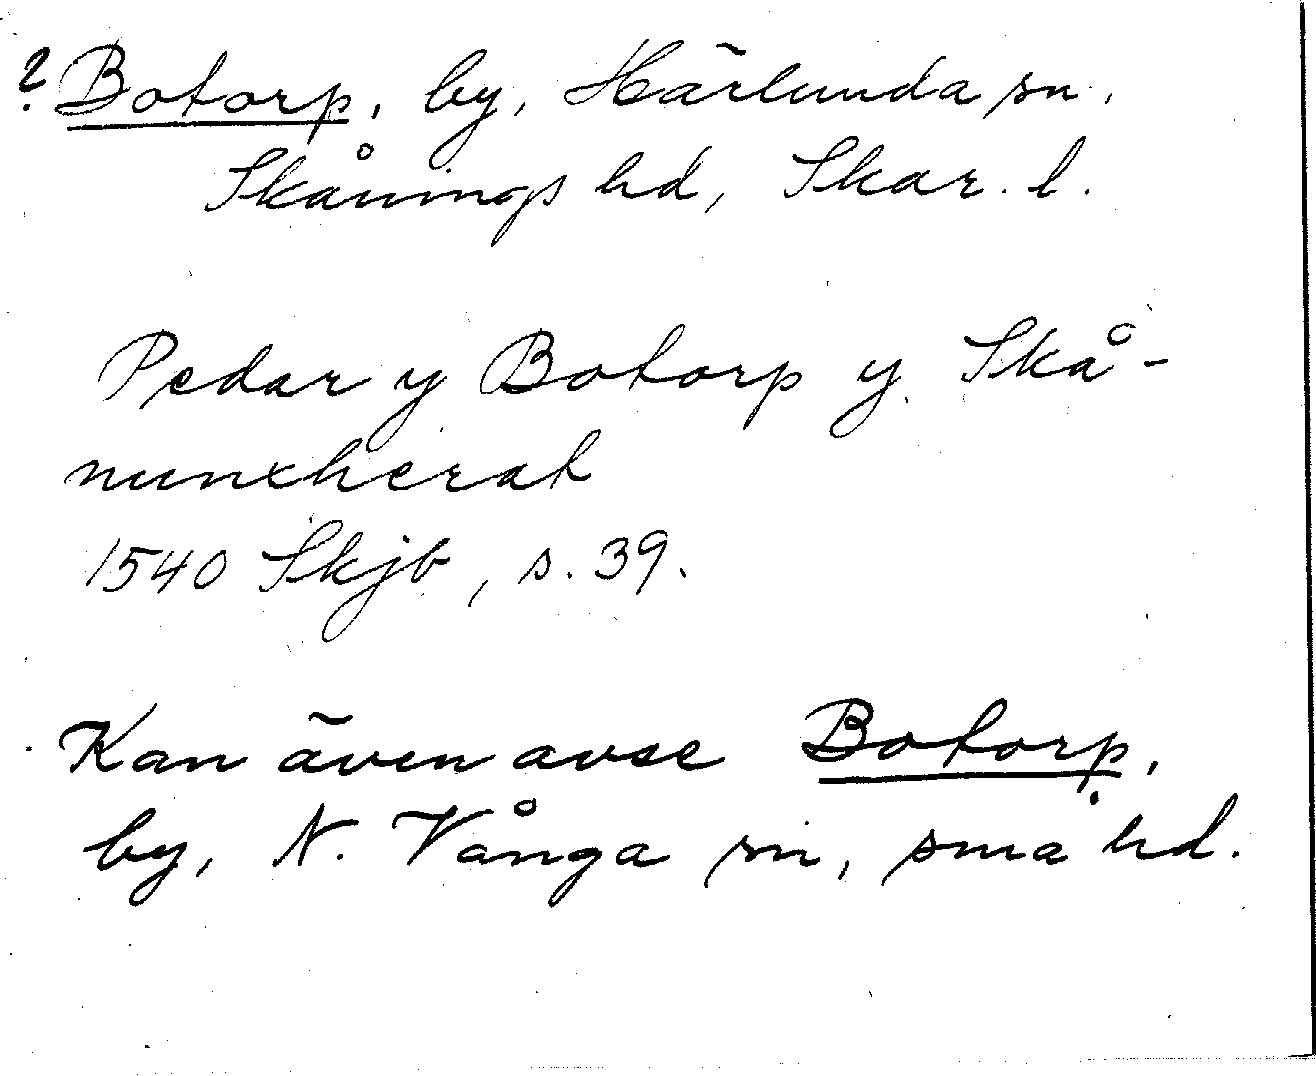 ? Botorp, by, Härlunda sn.
Skånings hd, Skar. l.
Pedar y Botorp y Skå-
nunxherat
1540 Skjb, s. 39.
Kan även avse Botorp,
by, N. Vånga sn, små hd.